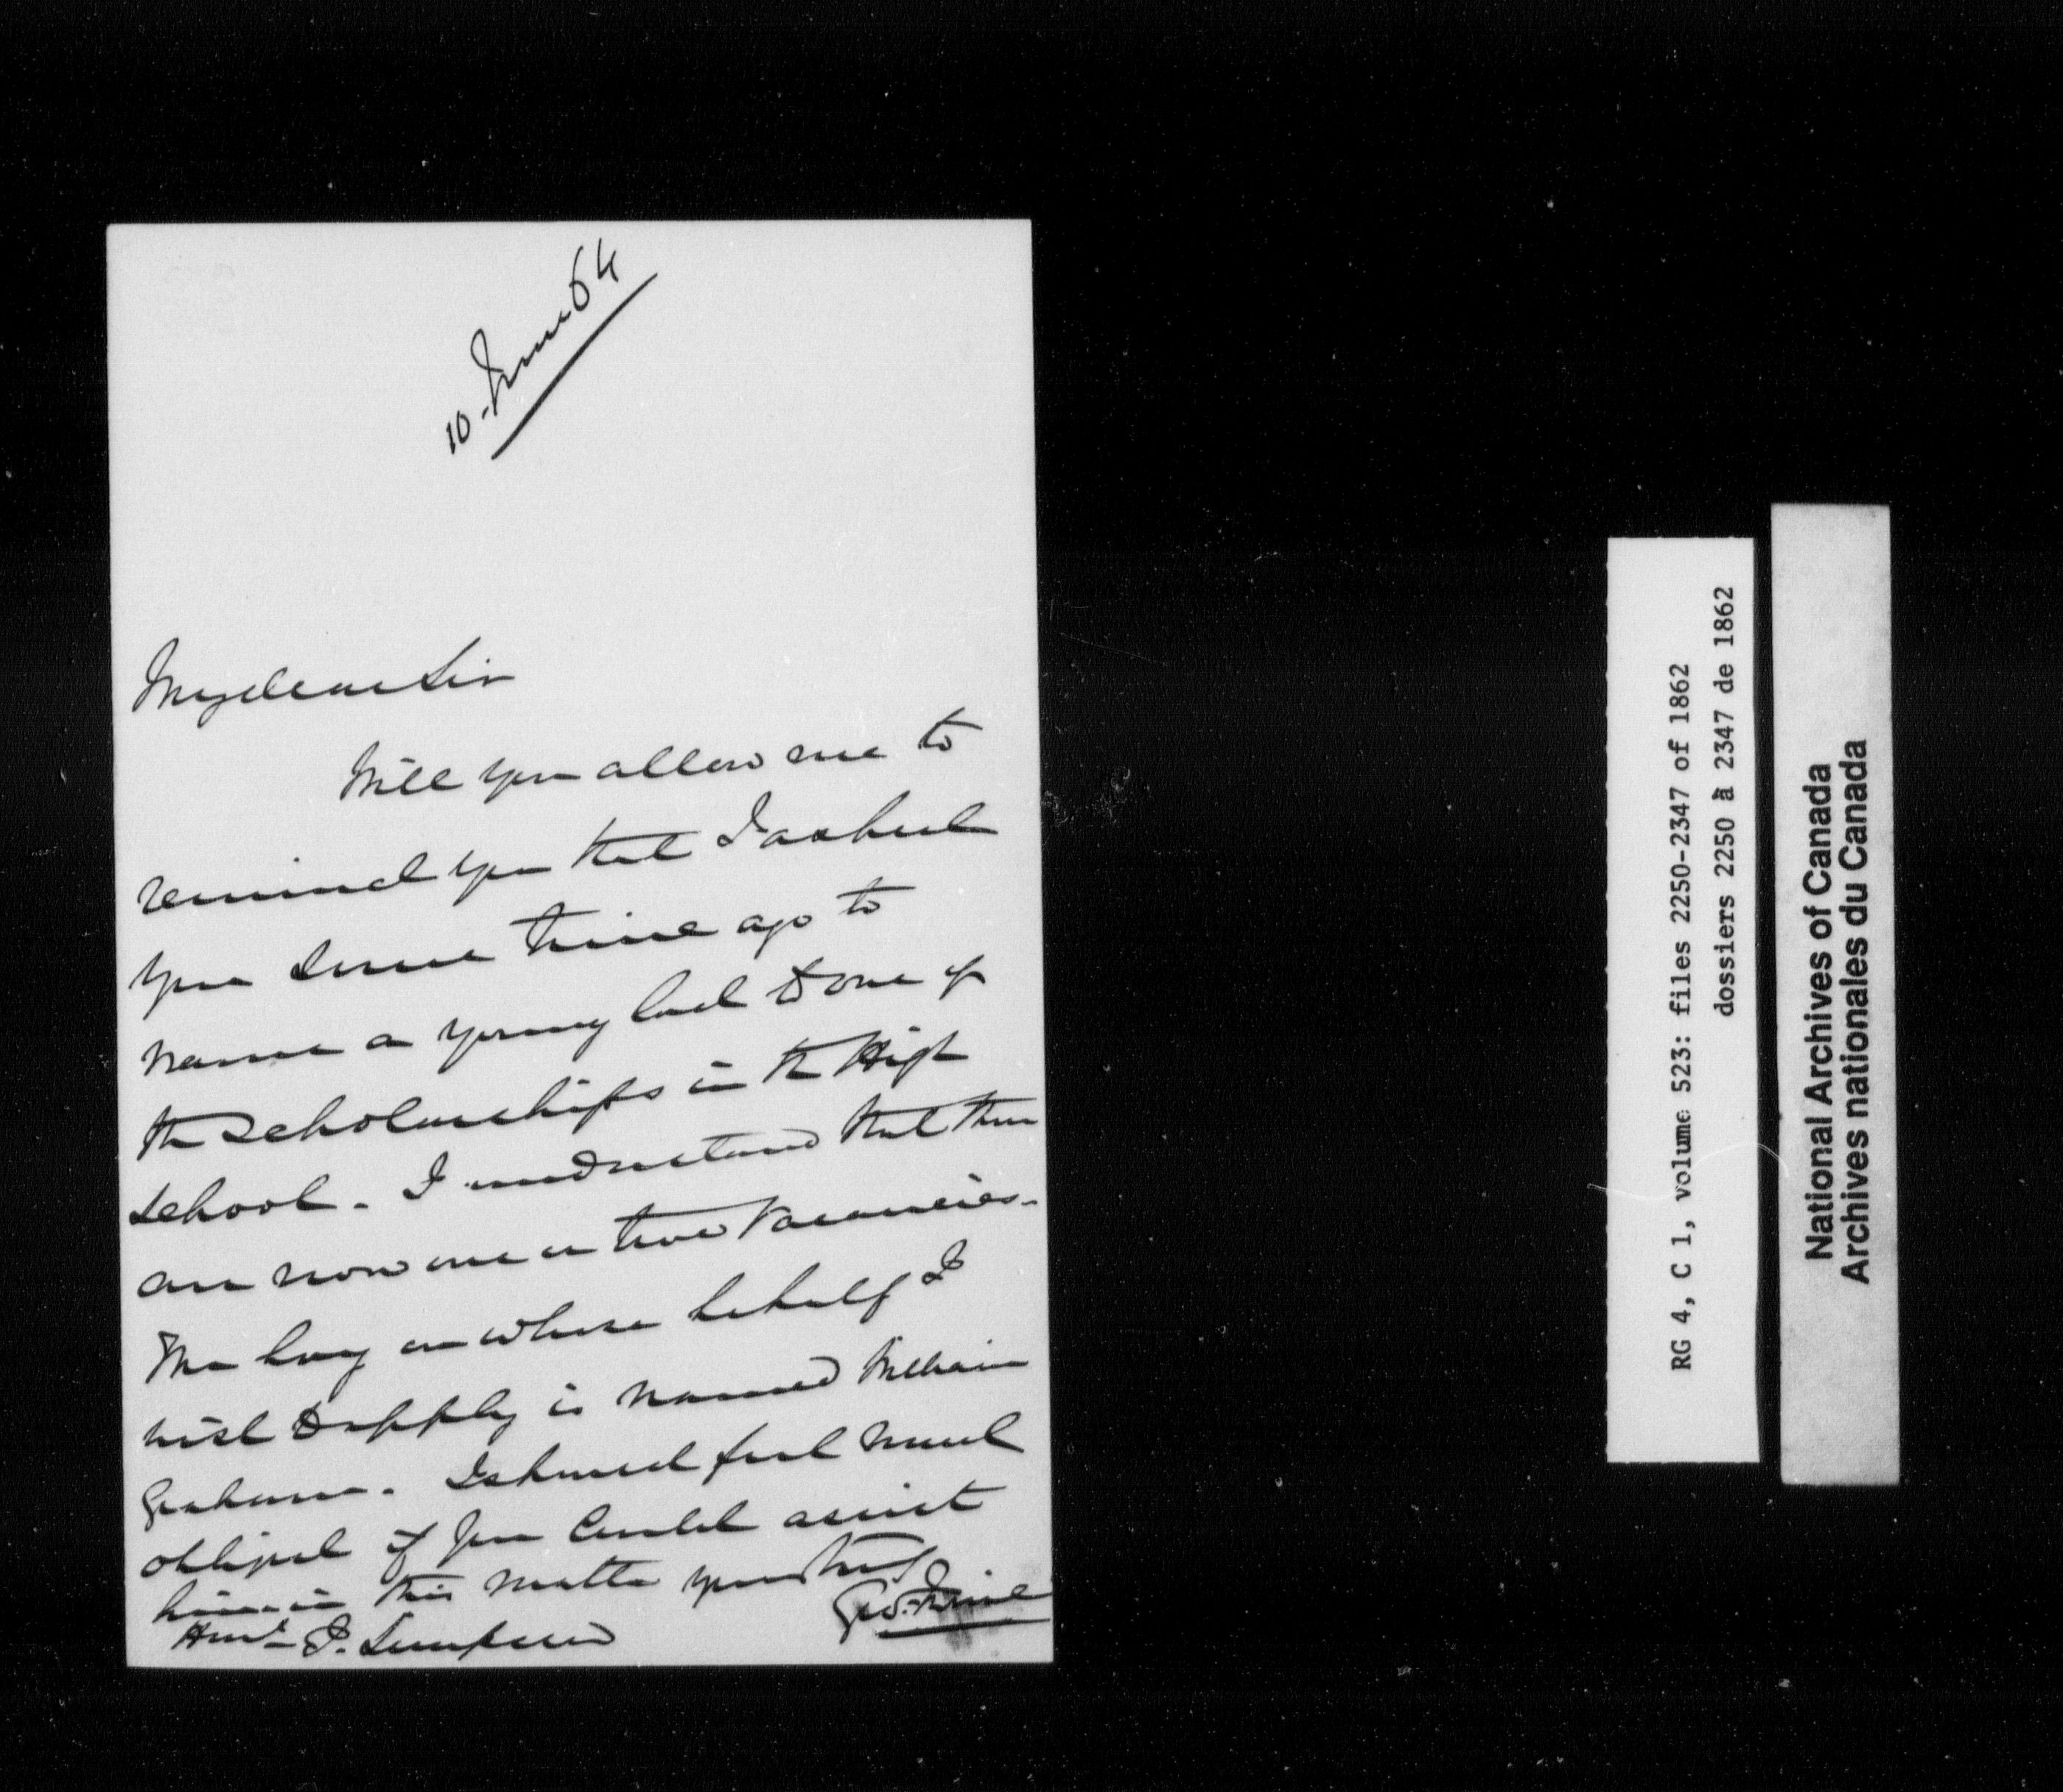 10 June 64
My dear Sir
Will you allow me to
remind you that I asked
you some time ago to
name a young lad to one of
the scholarships in the High
school. I understand that there
are now one or two vacancies.
The boy on whose behalf I
wish to apply is named William
Graham. I should feel much
obliged if you could assist
him in this matter yours truly
Geo.
Honble J. Simpson
RG 4, C 1, volume 523: files 2250-2347 of 1862
dossiers 2250 à 2347 de 1862
National Archives of Canada
Archives nationales du Canada